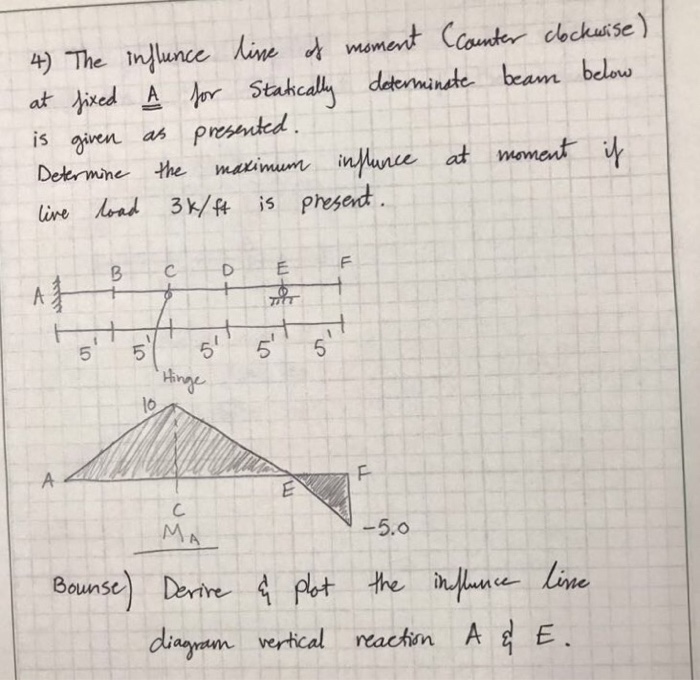 4) The influnce line of moment (Counter clockwise)
at fixed A for Statically determinate beam below
is given as presented.
Determine the maximum influnce at moment if
live load 3k/ft is present.
A B C D E F
5' 5' 5' 5' 5'
Hinge
10
A E F
C
MA
-5.0
Bounse) Derive & plot the influnce line
diagram vertical reaction A & E.